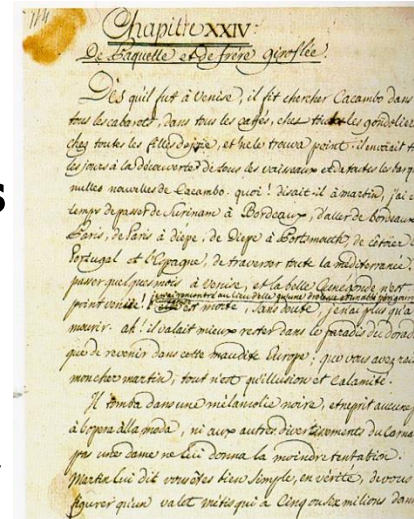 Chapitre XXIV.
De Paquette et de frère Giroflée.
Dès qu'il fut à Venise, il fit chercher Cacambo dans
tous les cabarets, dans tous les caffés, chez toutes les gondelier
chez toutes les filles de joye, et ne le trouva point. il envoioit t
les jours à la découverte de tous les vaisseaux et de toutes les barq
nulles nouvelles de Cacambo. quoi! disait-il à martin, j'ai e
temps de passer de Surinam à Bordeaux, d'aller de bordeaux
Paris, de Paris à diepe, de Diepe à Portsmouth, de côtoier
Portugal et l'Espagne, de traverser toute la mediterranée,
passer quelques mois à Venise, et la belle Cunegonde n'est
point venüe! je n'ai rencontré au lieu d'elle qu'une
est morte, sans doute, je n'ai plus qu'à
mourir. ah! il valait mieux rester dans le paradis du dorad
que de revenir dans cette maudite Europe; que vous avez rai
mon cher martin; tout n'est qu'illusion et calamité.
Il tomba dans une mélancolie noire, et ne prit aucune
à l'opera alla moda, ni aux autres divertissements du Carna
pas une dame ne lui donna la moindre tentation.
Martin lui dit vous êtes bien simple, en vérité, de vous
figurer qu'un valet métis qui a Cinq ou six milions dans